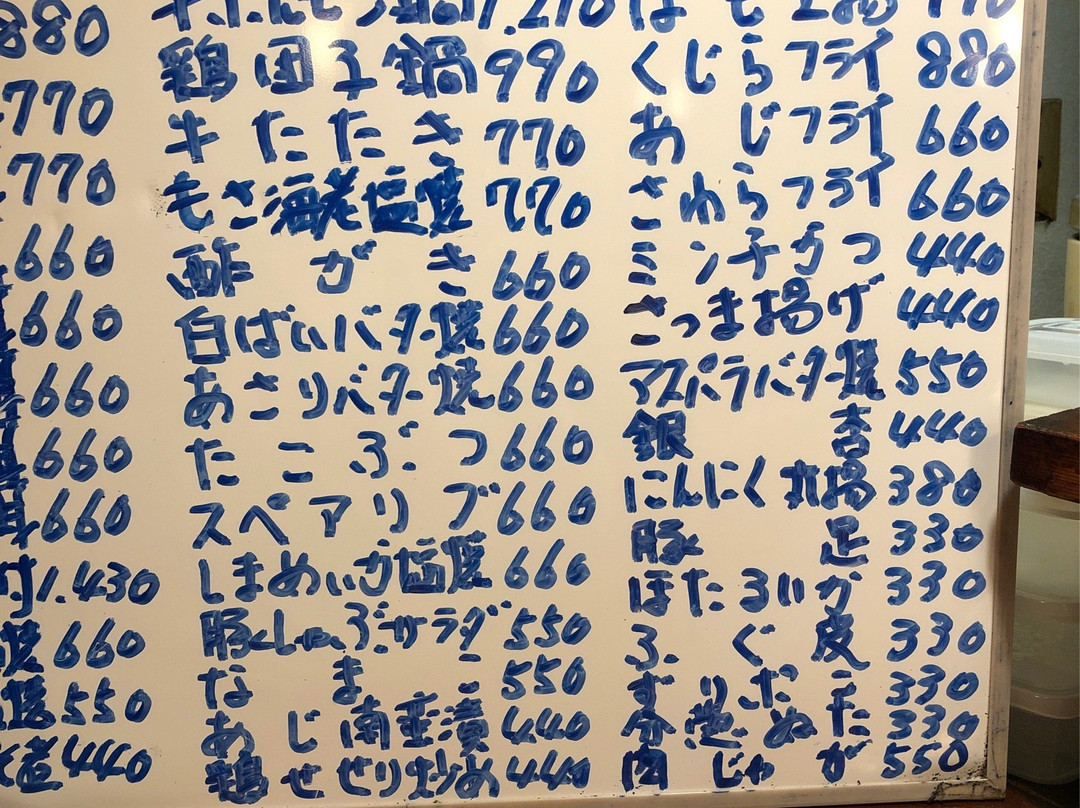 880
770
770
660
660
660
660
660
1.430
660
550
440
鶏団子鍋 990
牛たたき 770
もさ海老塩焼 770
酢がき 660
白ばいバター焼 660
あさりバター焼 660
たこぶつ 660
スペアリブ 660
しまめいか塩焼 660
豚しゃぶサラダ 550
なまこ 550
あじ南蛮漬 440
鶏せせり炒め 440
くじらフライ 880
あじフライ 660
さわらフライ 660
ミンチかつ 440
さつま揚げ 440
アスパラバター焼 550
銀杏 440
にんにく丸揚 380
豚足 330
ほたるいか 330
ふぐ皮 330
330
分葱ぬた 330
肉じゃが 550